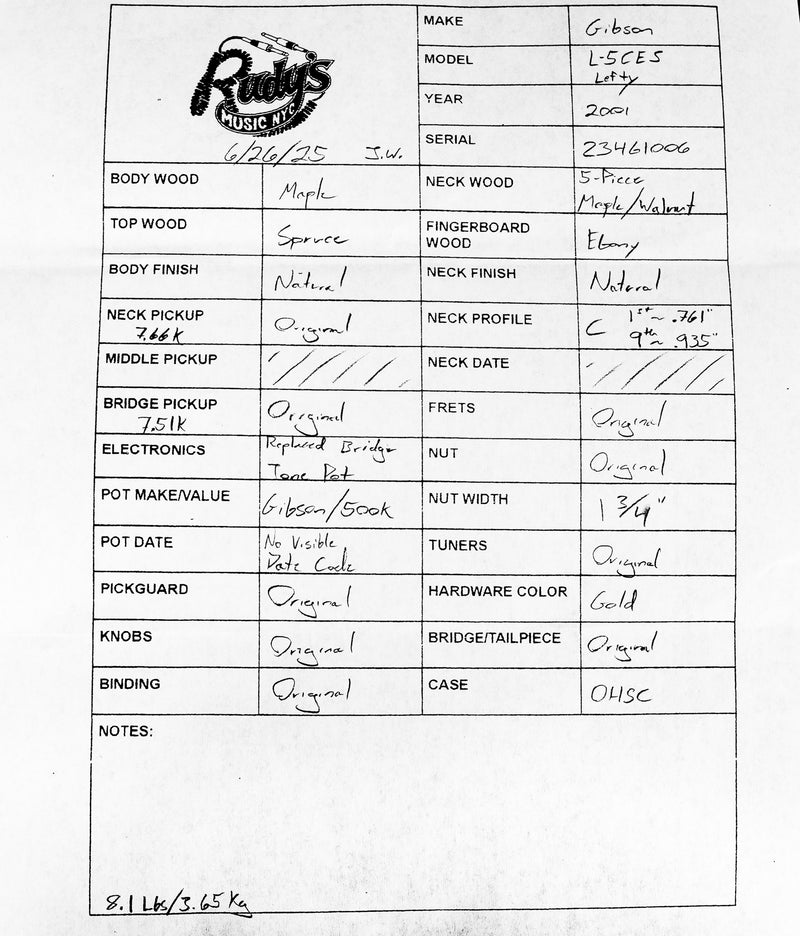 Rudy's
MUSIC NYC
6/26/25 J.W.
MAKE Gibson
MODEL L-5CES
Lefty
YEAR 2001
SERIAL 23461006
BODY WOOD Maple
NECK WOOD 5-Piece
Maple/Walnut
TOP WOOD Spruce
FINGERBOARD
WOOD Ebony
BODY FINISH Natural
NECK FINISH Natural
NECK PICKUP Original
7.66K
NECK PROFILE C 1st ~ .761"
9th ~ .935"
MIDDLE PICKUP
NECK DATE
BRIDGE PICKUP Original
7.51K
FRETS Original
ELECTRONICS Replaced Bridge
Tone Pot
NUT Original
POT MAKE/VALUE Gibson/500K
NUT WIDTH 1 3/4"
POT DATE No Visible
Date Code
TUNERS Original
PICKGUARD Original
HARDWARE COLOR Gold
KNOBS Original
BRIDGE/TAILPIECE Original
BINDING Original
CASE OHSC
NOTES:
8.1 Lbs/3.65 Kg